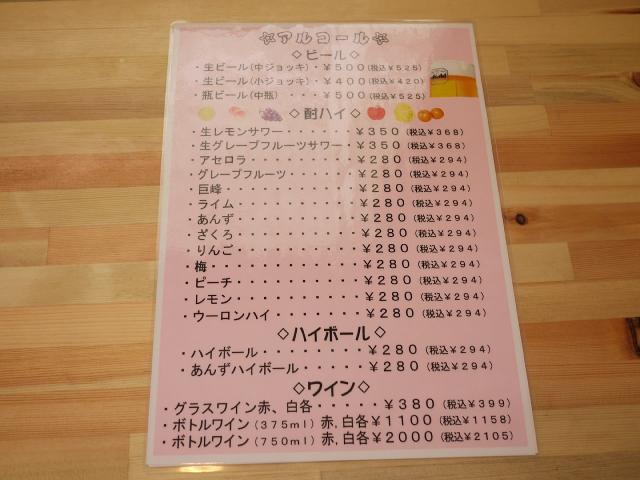 ☆アルコール☆
◇ビール◇
・生ビール(中ジョッキ)・￥５００(税込￥５２５)
・生ビール(小ジョッキ)・￥４００(税込￥４２０)
・瓶ビール(中瓶)・・・￥５００(税込￥５２５)
◇酎ハイ◇
・生レモンサワー・・・・・・￥３５０(税込￥３６８)
・生グレープフルーツサワー・・￥３５０(税込￥３６８)
・アセロラ・・・・・・・・・￥２８０(税込￥２９４)
・グレープフルーツ・・・・・￥２８０(税込￥２９４)
・巨峰・・・・・・・・・・・￥２８０(税込￥２９４)
・ライム・・・・・・・・・・￥２８０(税込￥２９４)
・あんず・・・・・・・・・・￥２８０(税込￥２９４)
・ざくろ・・・・・・・・・・￥２８０(税込￥２９４)
・りんご・・・・・・・・・・￥２８０(税込￥２９４)
・梅・・・・・・・・・・・・￥２８０(税込￥２９４)
・ピーチ・・・・・・・・・・￥２８０(税込￥２９４)
・レモン・・・・・・・・・・￥２８０(税込￥２９４)
・ウーロンハイ・・・・・・・￥２８０(税込￥２９４)
◇ハイボール◇
・ハイボール・・・・・・・￥２８０(税込￥２９４)
・あんずハイボール・・・・・￥２８０(税込￥２９４)
◇ワイン◇
・グラスワイン赤、白各・・・・・￥３８０(税込￥３９９)
・ボトルワイン(３７５ml)赤,白各￥１１００(税込￥１１５８)
・ボトルワイン(７５０ml)赤,白各￥２０００(税込￥２１０５)